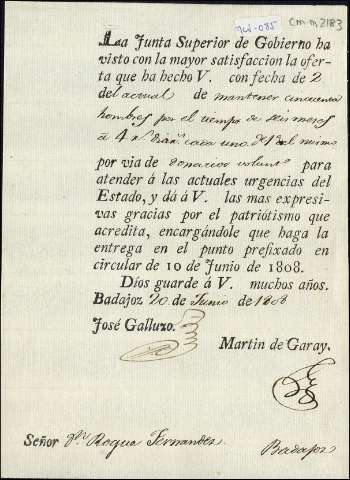 Cm m 2183
La Junta Superior de Gobierno ha
visto con la mayor satisfaccion la ofer-
ta que ha hecho V. con fecha de 2
del actual de mantener cincuenta
hombres por el tiempo de seis meses
a 4 r.s cada uno de
por via de donativo volunt.o para
atender á las actuales urgencias del
Estado, y dá á V. las mas expresi-
vas gracias por el patriótismo que
acredita, encargándole que haga la
entrega en el punto prefixado en
circular de 10 de Junio de 1808.
Dios guarde á V. muchos años.
Badajoz 20 de Junio de 1808
José Galluzo.
Martin de Garay.
Señor Dn Roque Fernandez.
Badajoz